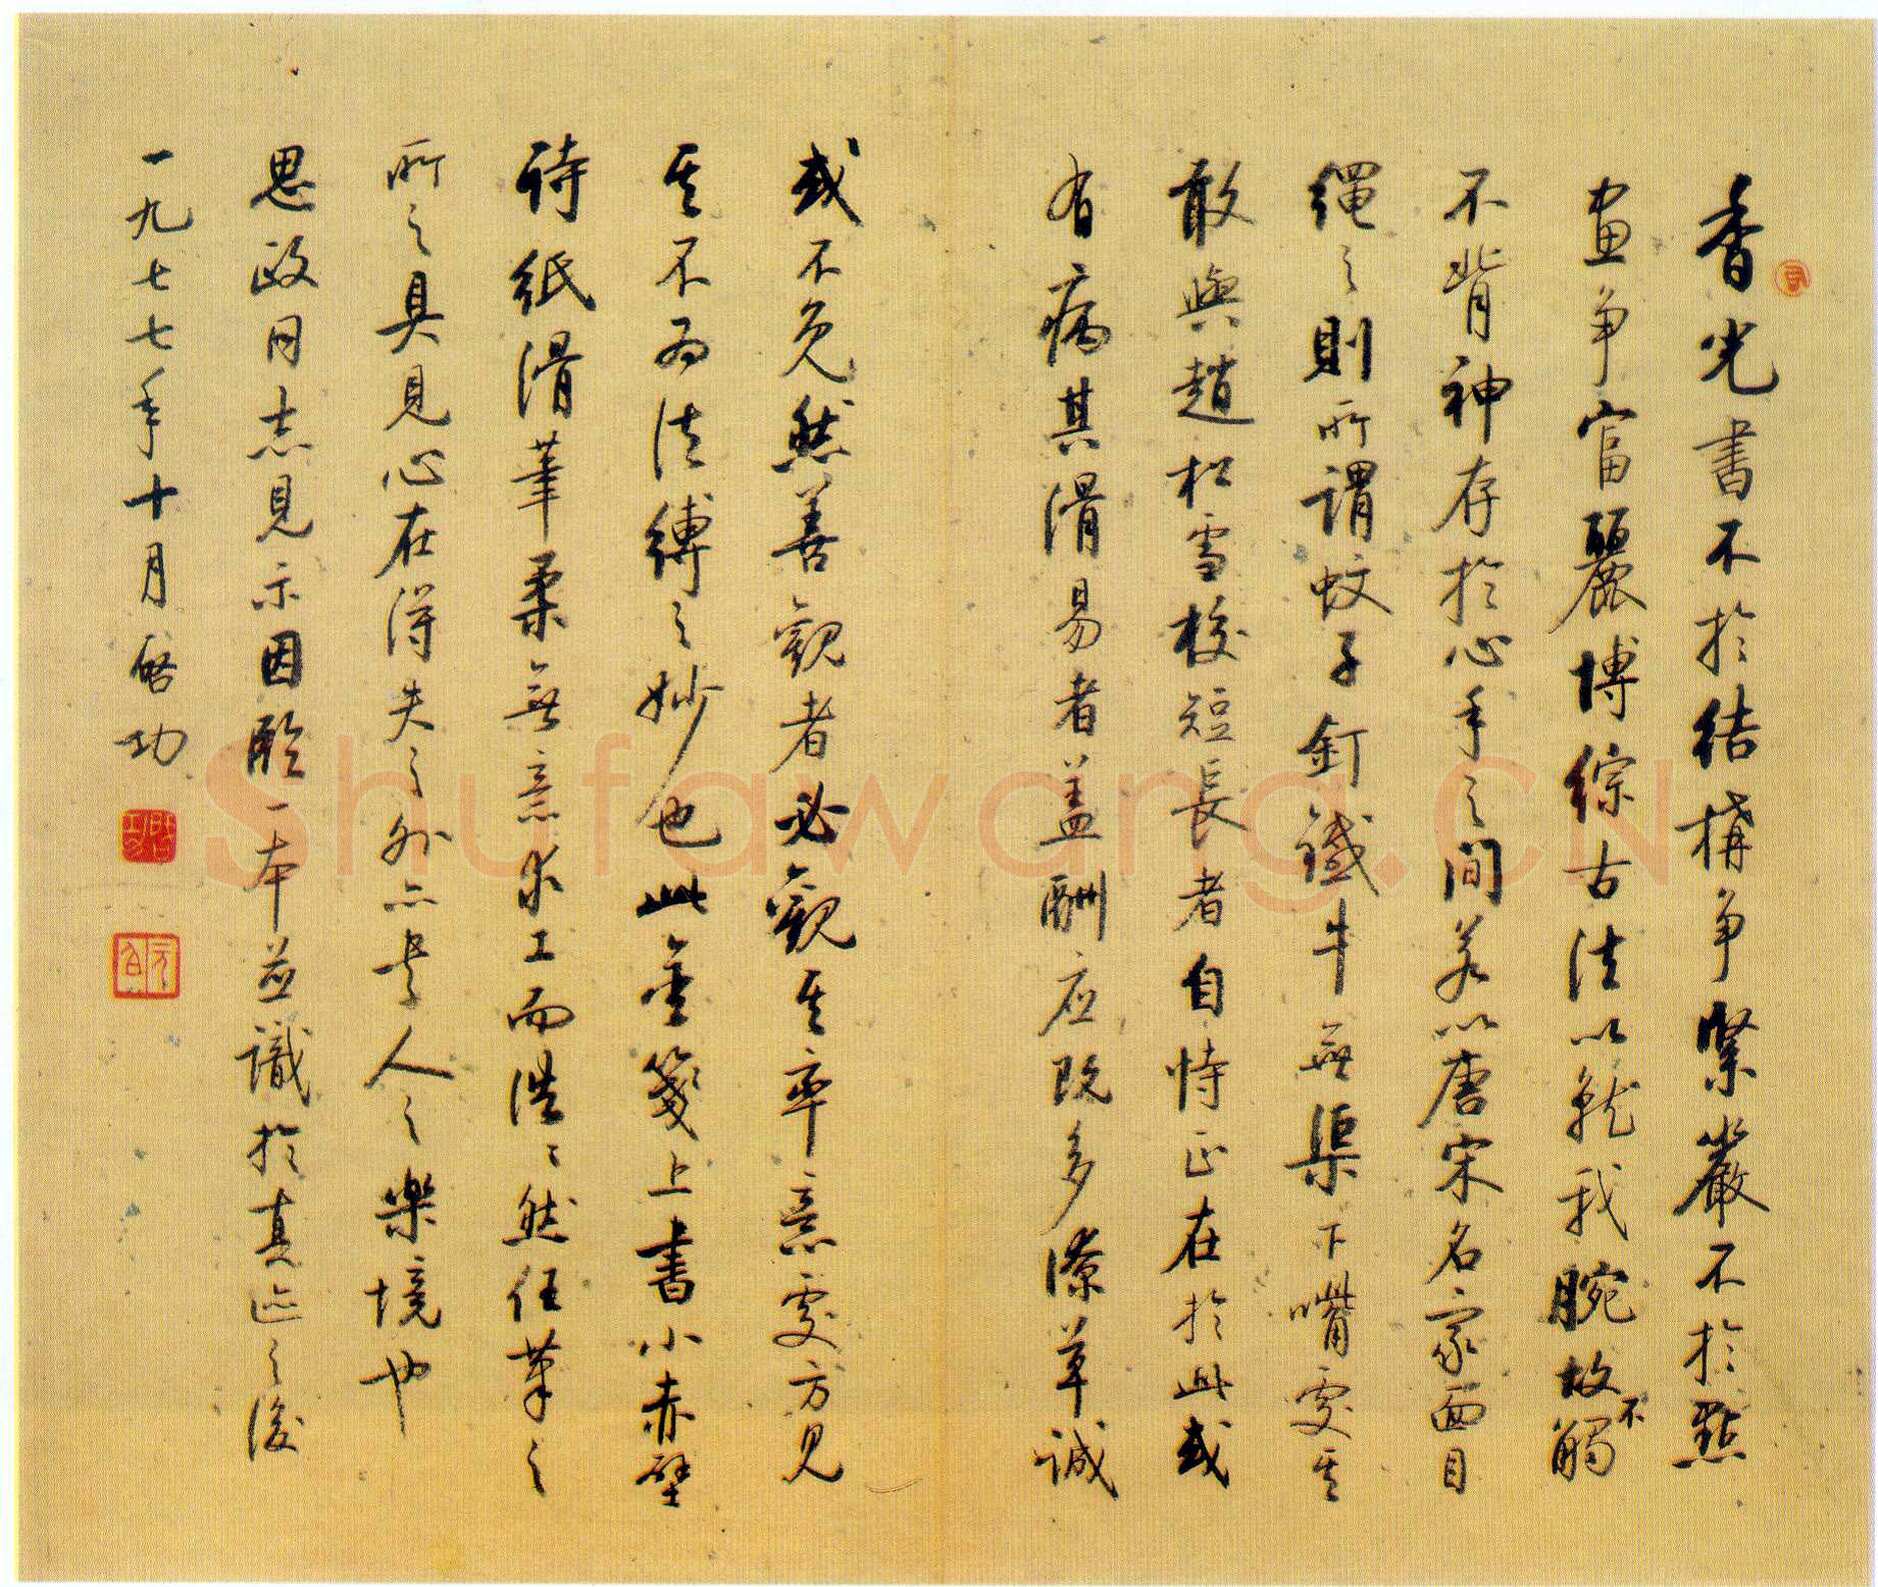 香光書不於結構争緊嚴不於點
画争富麗博綜古法以就我腕故不觸
不背神存於心手之間若以唐宋名家面目
繩之則所謂蚊子釘鐵牛無渠下嘴處其
敢與趙松雪校短長者自恃正在於此或
有病其滑易者盖酬应既多潦草誠
或不免然善觀者必觀其率意處方見
其不为法縛之妙也此金箋上書小赤壁
詩紙滑筆柔無意求工而浩浩然任筆之
所之具見心在得失之外亦老人之樂境也
思政同志見示因臨一本並識於真迹之後
一九七七年十月啓功
啟功
元白
Shufawang.CN